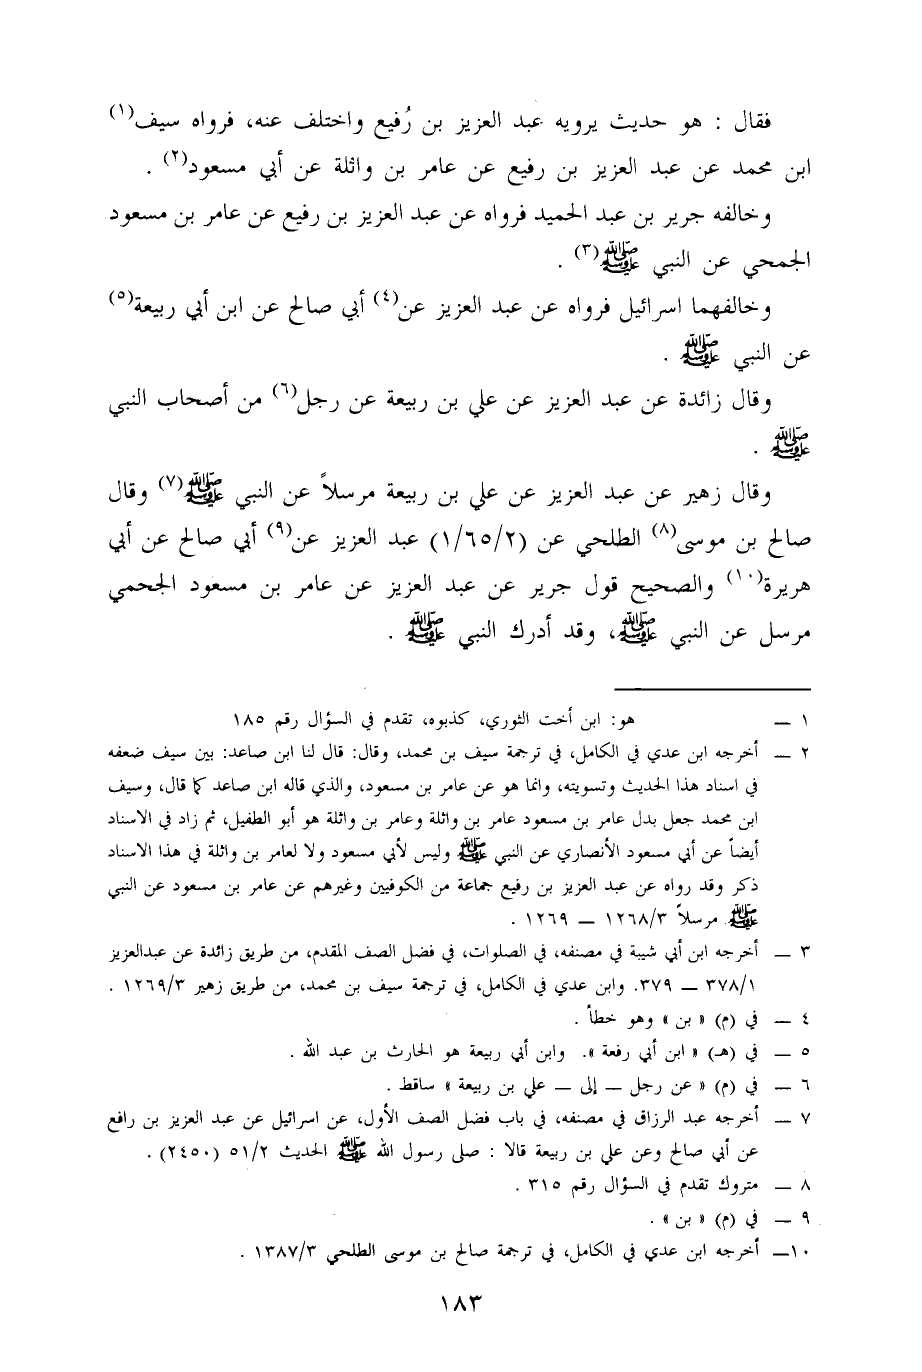 فقال : هو حديث يرويه عبد العزيز بن رُفيع واختلف عنه، فرواه سيف(١)
ابن محمد عن عبد العزيز بن رفيع عن عامر بن واثلة عن أبي مسعود(٢) .
وخالفه جرير بن عبد الحميد فرواه عن عبد العزيز بن رفيع عن عامر بن مسعود
الجمحي عن النبي ﷺ(٣) .
وخالفهما اسرائيل فرواه عن عبد العزيز عن(٤) أبي صالح عن ابن أبي ربيعة(٥)
عن النبي ﷺ .
وقال زائدة عن عبد العزيز عن علي بن ربيعة عن رجل(٦) من أصحاب النبي
ﷺ .
وقال زهير عن عبد العزيز عن علي بن ربيعة مرسلاً عن النبي ﷺ(٧) وقال
صالح بن موسى(٨) الطلحي عن (١/٦٥/٢) عبد العزيز عن(٩) أبي صالح عن أبي
هريرة(١٠) والصحيح قول جرير عن عبد العزيز عن عامر بن مسعود الجحمي
مرسل عن النبي ﷺ، وقد أدرك النبي ﷺ .
١ — هو: ابن أخت الثوري، كذبوه، تقدم في السؤال رقم ١٨٥
٢ — أخرجه ابن عدي في الكامل، في ترجمة سيف بن محمد، وقال: قال لنا ابن صاعد: بين سيف ضعفه
في اسناد هذا الحديث وتسويته، وانما هو عن عامر بن مسعود، والذي قاله ابن صاعد كما قال، وسيف
ابن محمد جعل بدل عامر بن مسعود عامر بن واثلة وعامر بن واثلة هو أبو الطفيل، ثم زاد في الاسناد
أيضاً عن أبي مسعود الأنصاري عن النبي ﷺ وليس لأبي مسعود ولا لعامر بن واثلة في هذا الاسناد
ذكر وقد رواه عن عبد العزيز بن رفيع جماعة من الكوفيين وغيرهم عن عامر بن مسعود عن النبي
ﷺ مرسلاً ١٢٦٨/٣ — ١٢٦٩ .
٣ — أخرجه ابن أبي شيبة في مصنفه، في الصلوات، في فضل الصف المقدم، من طريق زائدة عن عبدالعزيز
٣٧٨/١ — ٣٧٩. وابن عدي في الكامل، في ترجمة سيف بن محمد، من طريق زهير ١٢٦٩/٣ .
٤ — في (م) « بن » وهو خطأ .
٥ — في (هـ) « ابن أبي رفعة ». وابن أبي ربيعة هو الحارث بن عبد الله .
٦ — في (م) « عن رجل — إلى — علي بن ربيعة » ساقط .
٧ — أخرجه عبد الرزاق في مصنفه، في باب فضل الصف الأول، عن اسرائيل عن عبد العزيز بن رافع
عن أبي صالح وعن علي بن ربيعة قالا : صلى رسول الله ﷺ الحديث ٥١/٢ (٢٤٥٠) .
٨ — متروك تقدم في السؤال رقم ٣١٥ .
٩ — في (م) « بن » .
١٠— أخرجه ابن عدي في الكامل، في ترجمة صالح بن موسى الطلحي ١٣٨٧/٣ .
١٨٣